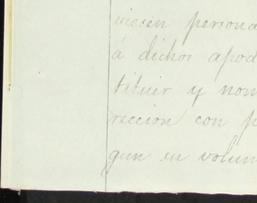 viesen persona
á dichos apod
tituir y nom
rección con p
gun su volun